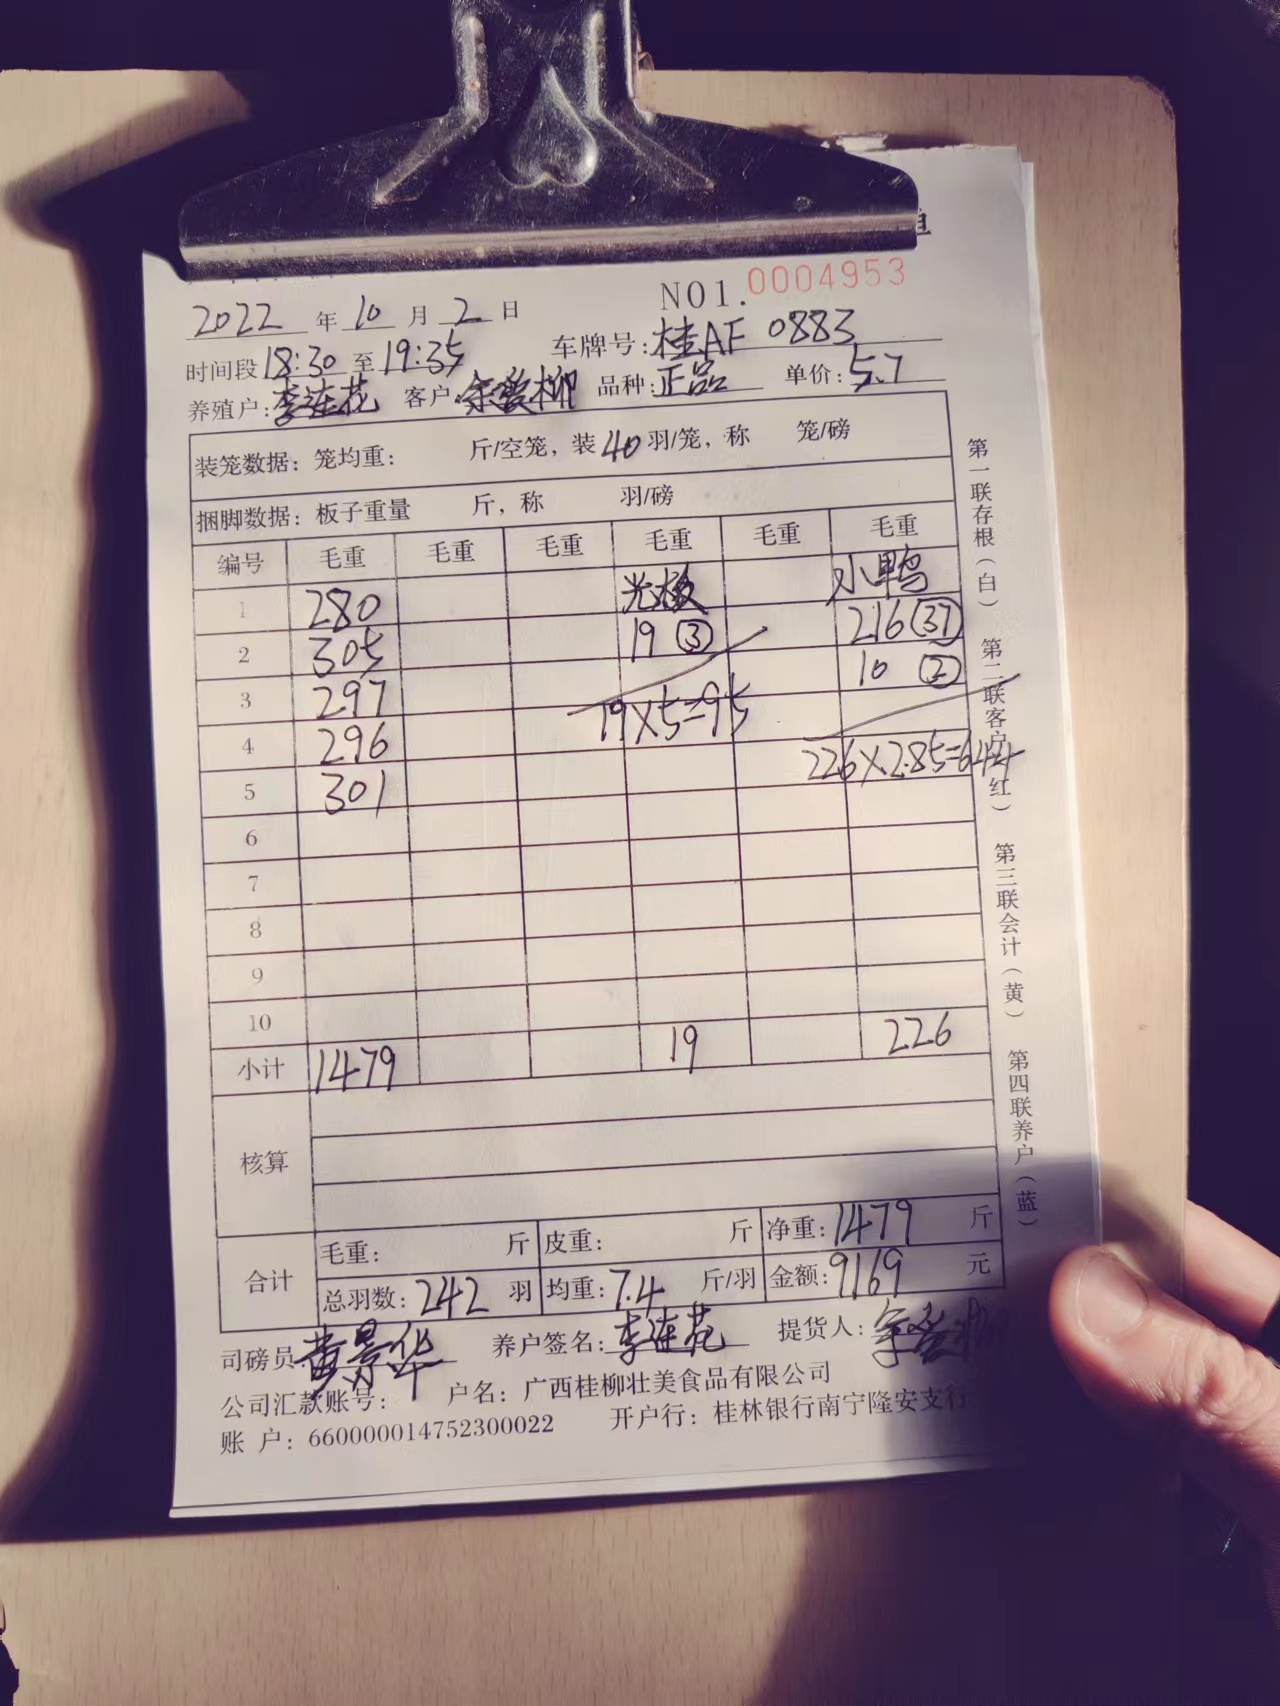 单
NO1.0004953
2022年10月2日
时间段18:30至19:35 车牌号:桂AF 0883
养殖户:李连花 客户:余爱柳 品种:正品 单价:5.7
装笼数据:笼均重: 斤/空笼,装40羽/笼,称 笼/磅
捆脚数据:板子重量 斤,称 羽/磅
编号 毛重 毛重 毛重 毛重 毛重 毛重
1 280 光板 小鸭
2 305 19 ③ 216 (37)
3 297 10 ②
4 296 19×5=95
5 301 226×2.85=644
6
7
8
9
10
小计 1479 19 226
核算
合计 毛重: 斤 皮重: 斤 净重:1479 斤
总羽数:242 羽 均重:7.4 斤/羽 金额:9169 元
司磅员:黄景华 养户签名:李连花 提货人:余爱柳
公司汇款账号: 户名:广西桂柳壮美食品有限公司
账 户:660000014752300022 开户行:桂林银行南宁隆安支行
第一联存根(白) 第二联客户(红) 第三联会计(黄) 第四联养户(蓝)